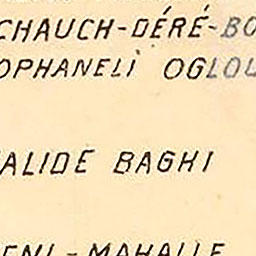 CHAUCH-DÉRÉ-BO
OPHANELI OGLOU
ALIDE BAGHI
ENI-MAHALLE